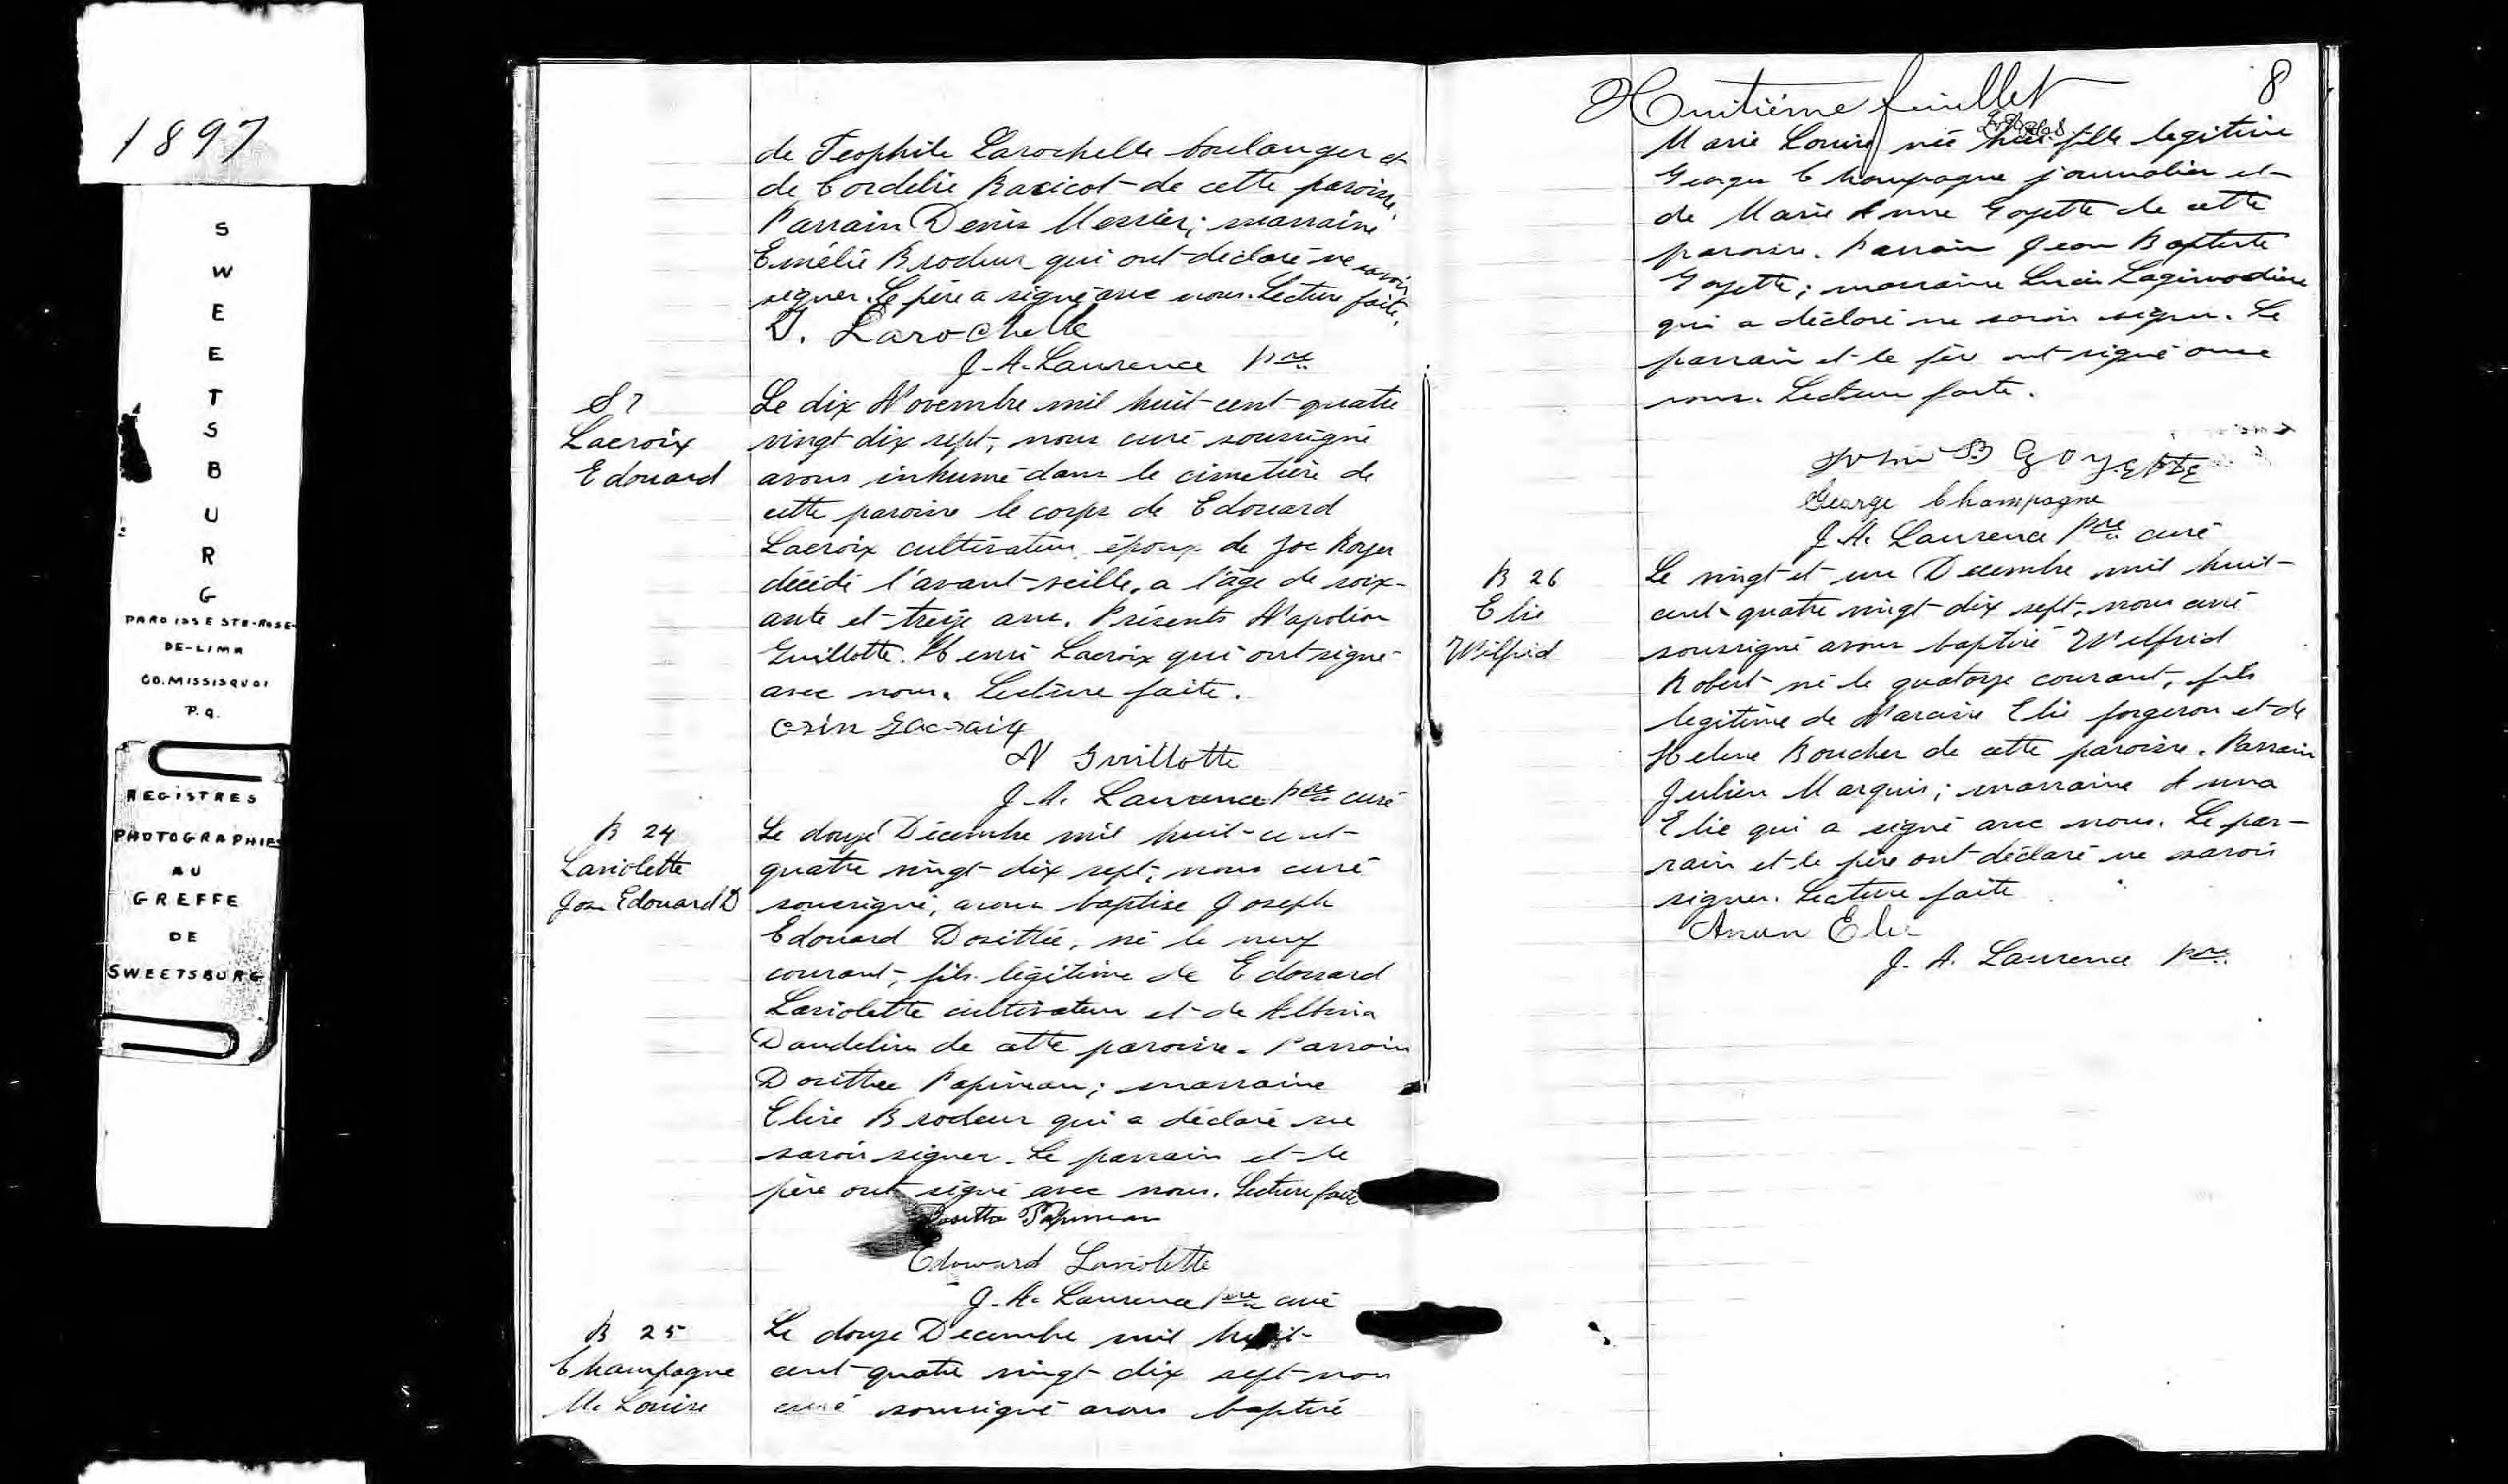 1897
S
W
E
E
T
S
B
U
R
G
PAROISSE STE-ROSE-
DE-LIMA
CO. MISSISQUOI
P.Q.
REGISTRES
PHOTOGRAPHIES
AU
GREFFE
DE
SWEETSBURG
de Teophile Larochelle boulanger et
de Cordelie Racicot de cette paroisse.
Parrain Denis Messier; marraine
Emélie Brodeur qui ont déclaré ne savoir
signer. Le père a signé avec nous. Lecture faite.
T. Larochelle
J. A. Laurence ptre
S 7
Lacroix
Edouard
Le dix Novembre mil huit-cent-quatre
vingt dix sept, nous curé soussigné
avons inhumé dans le cimetière de
cette paroisse le corps de Edouard
Lacroix cultivateur, époux de Joe Royer
décédé l'avant-veille, a l'âge de soix-
ante et treize ans. Présents Napoléon
Guillotte. Henri Lacroix qui ont signé
avec nous. Lecture faite.
N Guillotte
J. A. Laurence ptre curé
B 24
Laviolette
Jos. Edouard D
Le douze Décembre mil huit-cent-
quatre vingt dix sept, nous curé
soussigné, avons baptise Joseph
Edouard Dosithée, né le neuf
courant, fils légitime de Edouard
Laviolette cultivateur et de Albina
Dandelin de cette paroisse. Parrain
Dosithee Papineau; marraine
Elise Brodeur qui a déclaré ne
savoir signer. Le parrain et le
père ont signé avec nous. Lecture faite
Dositte Papineau
Edouard Laviolette
J. A. Laurence ptre curé
B 25
Champagne
M. Louise
Le douze Decembre mil huit-
cent-quatre vingt dix sept nous
curé soussigné avons baptisé
Huitième feuillet
8
Marie Louise née fille legitime
Georges Champagne journalier et
de Marie Anne Goyette de cette
paroisse. Parrain Jean Baptiste
Goyette; marraine Lucie Lagimodière
qui a déclaré ne savoir signer. Le
parrain et le père ont signé avec
nous. Lecture faite.
John B Goyette
George Champagne
J. A. Laurence ptre curé
B 26
Elie
Wilfrid
Le vingt et un Decembre mil huit-
cent quatre vingt dix sept, nous curé
soussigné avons baptisé Wilfrid
Robert né le quatorze courant, fils
legitime de Narcisse Elie forgeron et de
Helene Boucher de cette paroisse. Parrain
Julien Marquis; marraine Anna
Elie qui a signé avec nous. Le par-
rain et le père ont déclaré ne savoir
signer. Lecture faite
Annan Elie
J. A. Laurence ptre